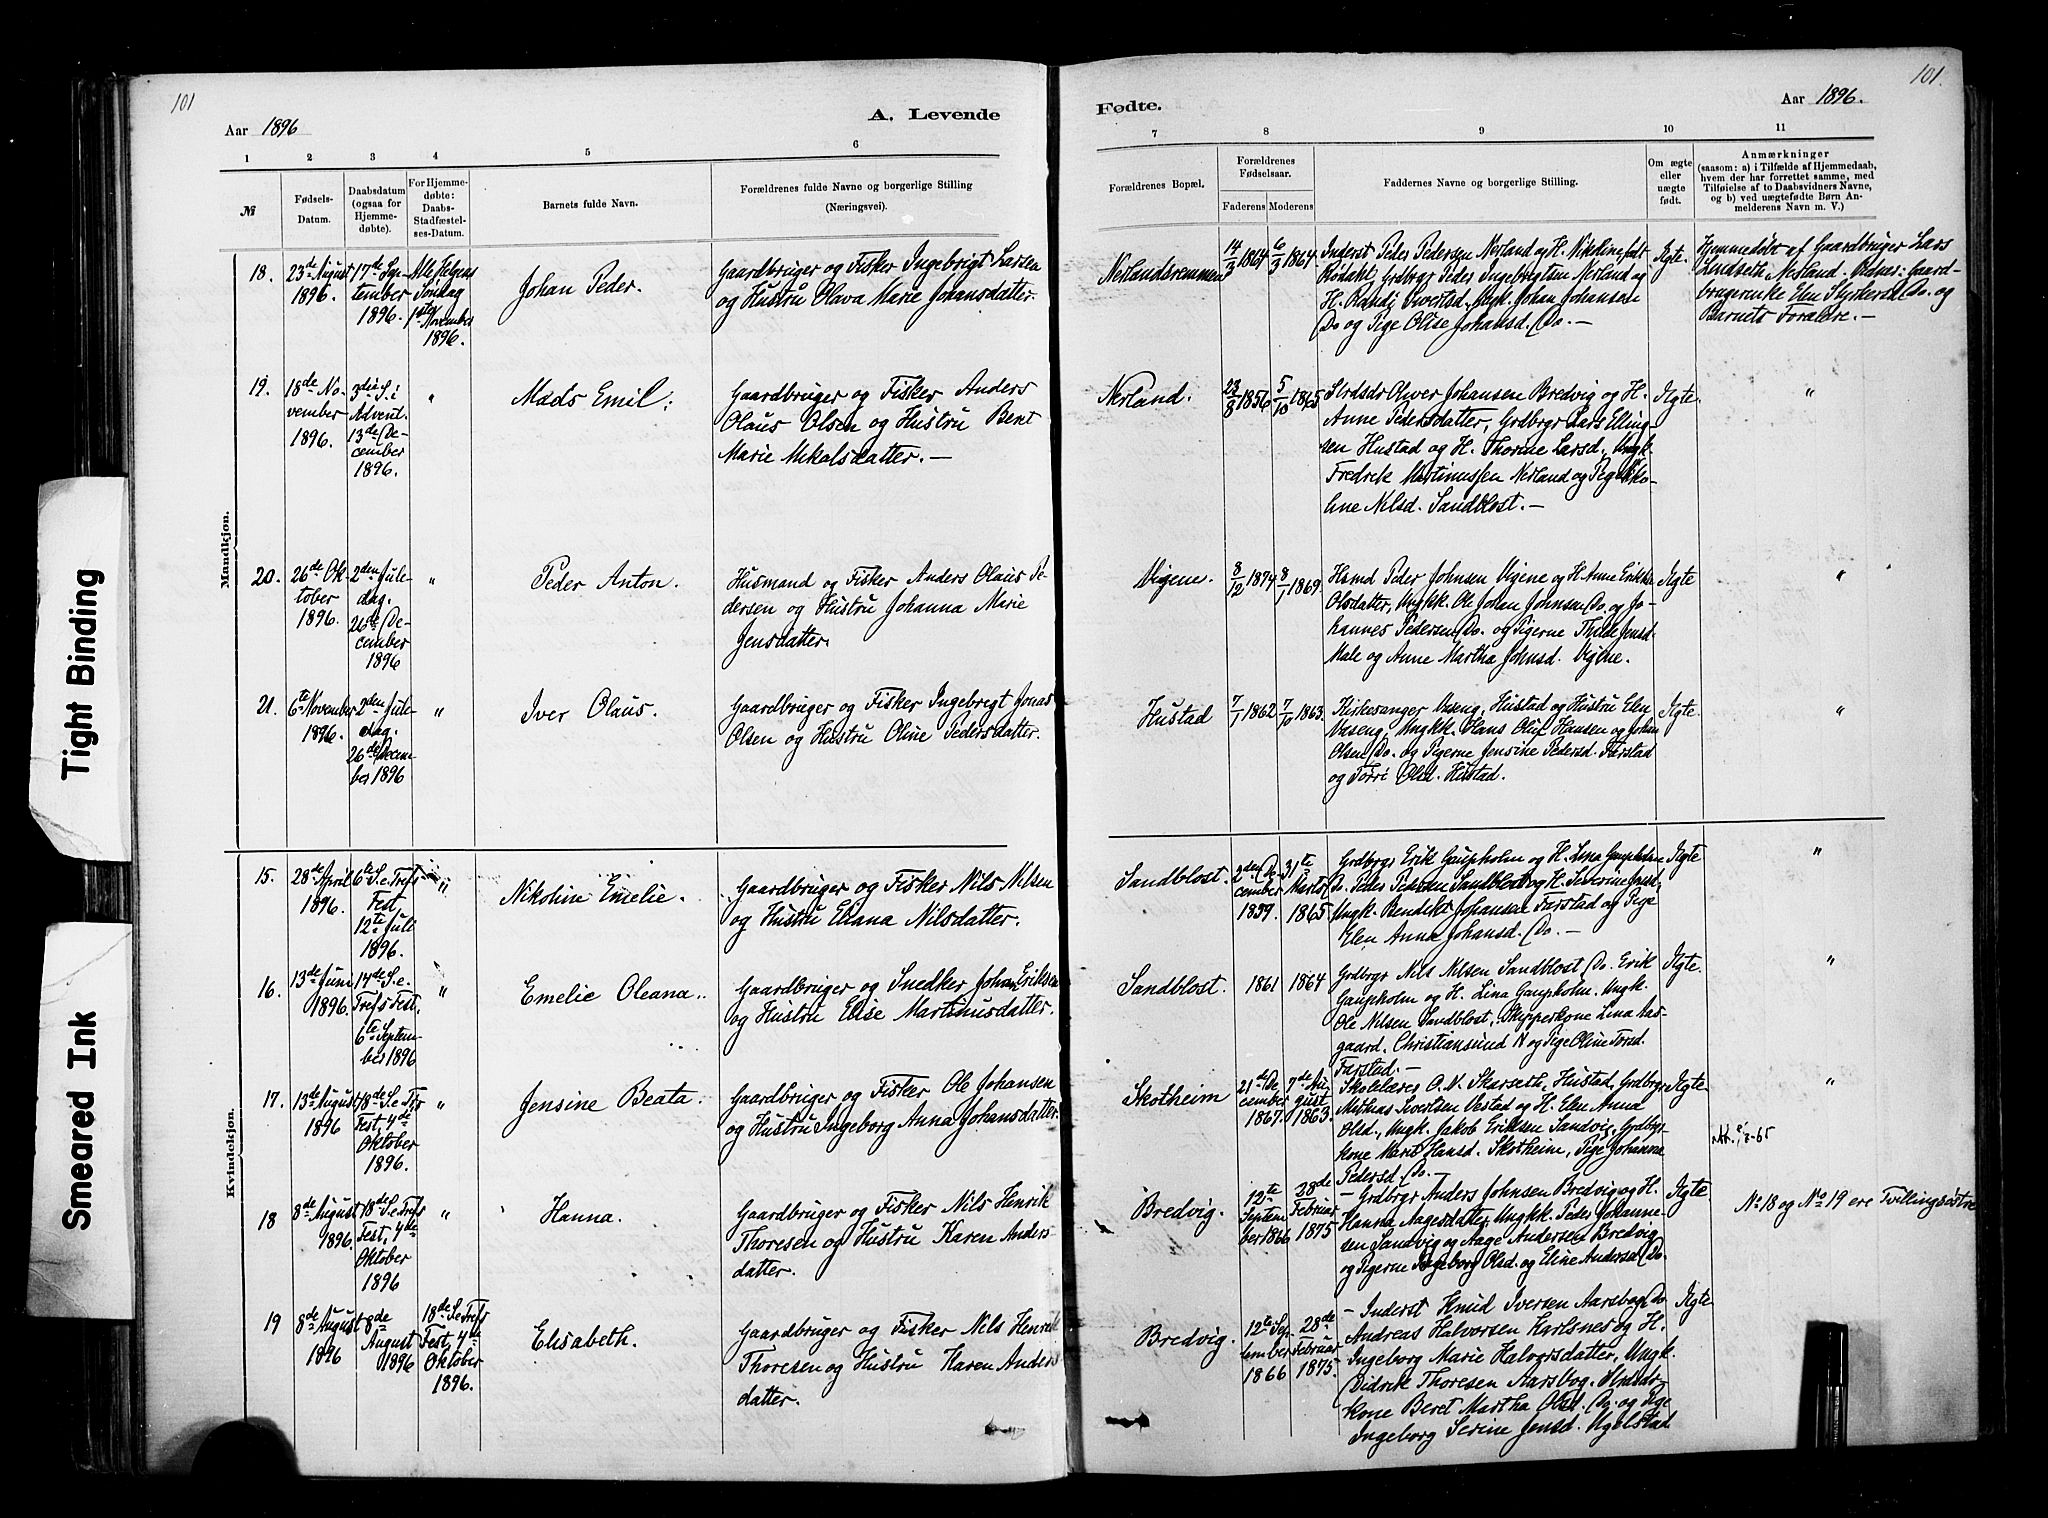 101
Aar 1896
A. Levende
1 2 3 4 5 6
№
Fødsels-Datum.
Daabsdatum (ogsaa for Hjemme-døbte).
For Hjemme-døbte: Daabs-Stadfæstel-ses-Datum.
Barnets fulde Navn.
Forældrenes fulde Navne og borgerlige Stilling
(Næringsvei).
Mandkjøn.
18.
23de August
1896.
17de Sep-
tember
1896.
Alle Helgens
Søndag
1ste November
1896.
Johan Peder.
Gaardbruger og Fisker Ingebrigt Larsen
og Hustru Olava Marie Johansdatter.
19.
18de No-
vember
1896.
3die S. i
Advent.
13de De-
cember
1896.
"
Mads Emil.
Gaardbruger og Fisker Anders
Olaus Olsen og Hustru Bent
Marie Mikalsdatter. —
20.
26de Ok-
tober
1896.
2den Jule-
dag.
26de De-
cember
1896
"
Peder Anton.
Husmand og Fisker Anders Olaus Pe-
dersen og Hustru Johanna Marie
Jensdatter.
21.
6te November
1896.
2den Jule-
dag.
26de Decem-
ber 1896
"
Iver Olaus.
Gaardbruger og Fisker Ingebregt Jonas
Olsen og Hustru Oline Pedersdatter.
Kvindekjøn.
15.
28de April
1896.
6te S. e. Trefs
Fest,
12te Juli
1896.
"
Nikoline Emelie.
Gaardbruger og Fisker Nils Nilsen
og Hustru Eliana Nilsdatter.
16.
13de Juni
1896.
14de S. e.
Trefs Fest,
6te Septem-
ber 1896
"
Emelie Oleana.
Gaardbruger og Snedker Johan Eriksen
og Hustru Elise Martinusdatter.
17.
13de August
1896
18de S. e. Trfs
Fest, 4de
Oktober
1896.
"
Jensine Beata.
Gaardbruger og Fisker Ole Johansen
og Hustru Ingeborg Anna Johansdatter.
18
8de August
1896.
18de S. e. Trefs
Fest, 4de
Oktober
1896
"
Hanna.
Gaardbruger og Fisker Nils Henrik
Thoresen og Hustru Karen Anders-
datter.
19
8de August
1896
8de
August
1896
18de S. e. Trefs
Fest, 4de
Oktober
1896.
Elisabeth.
Gaardbruger og Fisker Nils Henrik
Thoresen og Hustru Karen Anders
datter.
101.
Fødte.
Aar 1896.
7 8 9 10 11
Forældrenes Bopæl.
Forældrenes Fødselsaar.
Faderens Moderens
Faddernes Navne og borgerlige Stilling.
Om ægte eller uægte født.
Anmærkninger
(saasom: a) i Tilfælde af Hjemmedaab,
hvem der har forrettet samme, med
Tilføielse af to Daabsvidners Navne,
og b) ved uægtefødte Børn An-
melderens Navn m. V.)
Nerlandsremmen
14/3 1864
6/3 1864.
Inderst Peder Pedersen Nerland og H. Nikoline
Grdbrgr Peder Ingebrigtsen Nerland og
H. Randi Ungk. Johan Johansen
Do og Pige Olise Johansd. Do. —
Ægte.
Hjemmedøbt af Gaardbruger Lars
Lindseth, Nerland. Vidner: Gaard-
brugerenke Elen Do. og
Barnets Forældre. —
Nerland.
23/8 1856
5/10 1865
Oliver Johansen Bredvig og H.
Anne Pedersdatter, Grdbrgr Lars Elling-
sen Hustad og H. Thorine Larsd., Ungk.
Fredrik Martinussen Nerland og Pige Niko-
line Nilsd. Sandblost. —
Ægte.
"
Vigene.
8/12 1874
8/1 1869.
Hsmd Peder Johnsen Vigene og H. Anne Erikke
Olsdatter, Ungkk. Ole Johan Johnsen Do. og Jo-
hannes Pedersen Do. og Pigerne Thilde Jensd.
Male og Anne Martha Johnsd. Vigene.
Ægte
"
Hustad
7/1 1862
7/10 1863.
Kirkesanger Vaseng, Hustad og Hustru Elen
Vaseng, Ungkk. Hans Oluf Hansen og Johan
Olsen Do. og Pigerne Jensine Pedersd. Farstad
og Torri Olsd. Hustad.
Ægte.
"
Sandblost.
2den De-
cember
1839.
31te
Marts
1865
Grdbrgr Erik Gaupholm og H. Lina Gaupholm
Do. Peder Pedersen Sandblost og H. Severine
Ungk. Bendikt Johansen Farstad og Pige
Elen Anna Johansd. Do. —
Ægte
"
Sandblost.
1861
1864
Grdbrgr Nils Nilsen Sandblost, Do. Erik
Gaupholm og H. Lina Gaupholm. Ungk.
Ole Nilsen Sandblost, Skipperkone Lina Aas-
gaard. Christiansund N og Pige Oline
Farstad. —
Ægte.
"
Skotheim
21de De-
cember
1867.
7de Au-
gust
1863.
Skolelærer O. N. Skarseth, Hustad, Grdbrgr
Mathias Sivertsen Vestad og H. Elen Anna
Olsd., Ungk. Jakob Eriksen Sandvig, Grdbgr-
kone Marit Hansd. Skotheim, Pige Johanna
Pedersd. Do. —
Ægte
"
Bredvig.
12te
Septem
ber 1866
28de
Februar
1875
— Grdbrgr Anders Johnsen Bredvig og H.
Hanna Aagesdatter, Ungkk. Peder Johanne-
sen Sandvig og Aage Andersen Bredvig
og Pigerne Ingeborg Olsd. og Eline Andersd. Do.
Ægte.
No 18 og No 19 ere Tvillingsøstre
Bredvig.
12te Sep-
tember
1866
28de
Februar
1875.
— Inderst Knud Iversen Aarsbog, Do
Andreas Halvorsen Karlsnes og H.
Ingeborg Marie Halvorsdatter, Ungk.
Didrik Thoresen Aarsbog,
kone Beret Martha Olsd. Do. og Pige
Ingeborg Serine Jensd. Ugelstad
Ægte.
Tight Binding
Smeared Ink